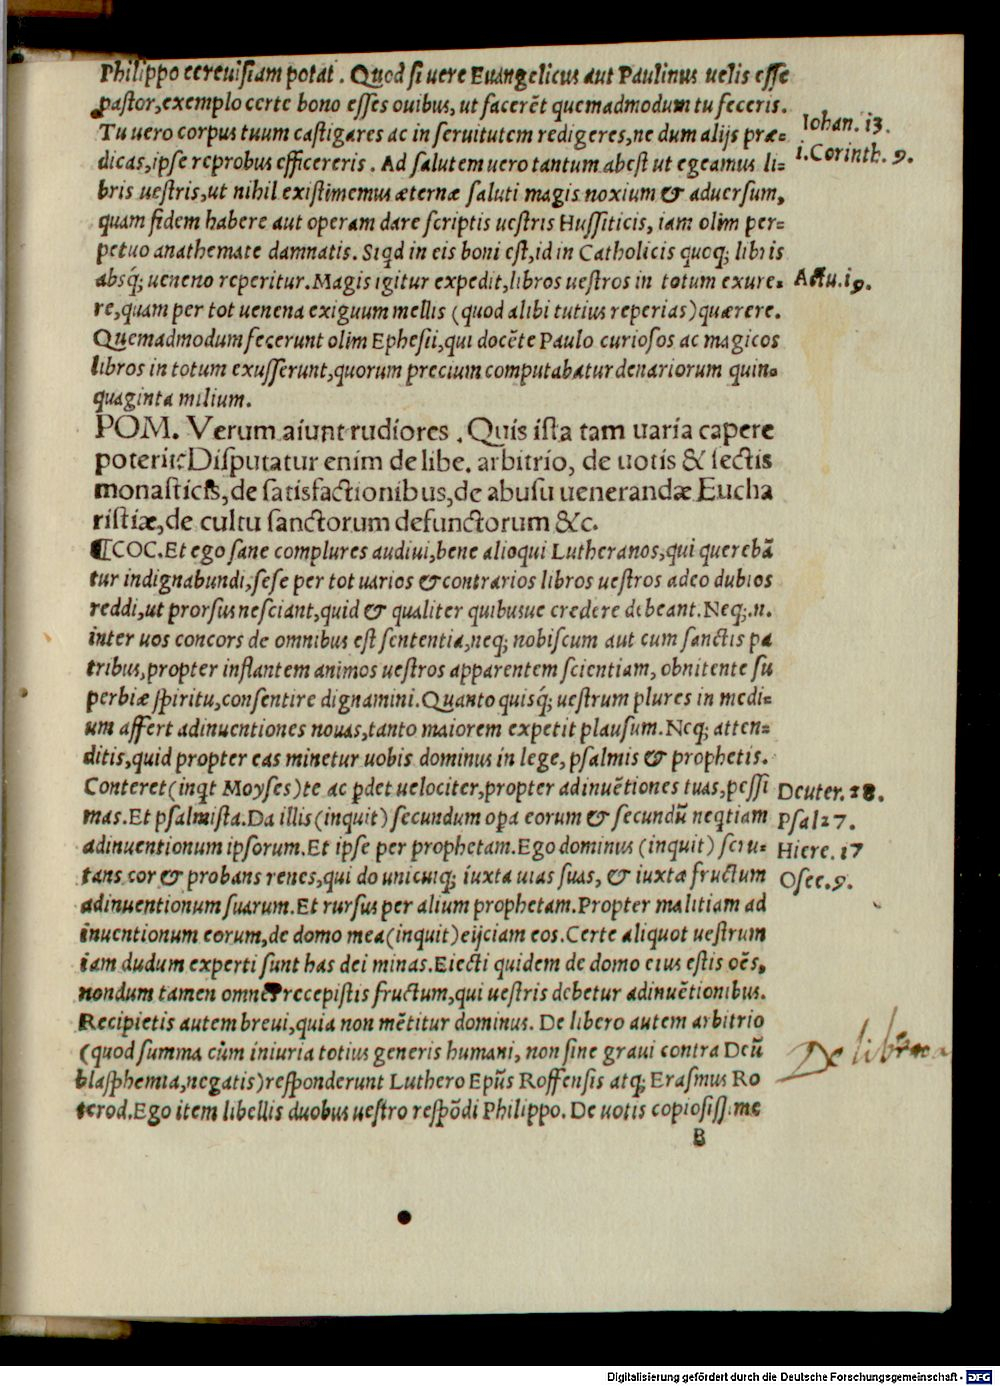 Philippo cereuisiam potat. Quod si uere Euangelicus aut Paulinus uelis esse
pastor, exemplo certe bono esses ouibus, ut facerēt quemadmodum tu feceris.
Iohan. 13.
Tu uero corpus tuum castigares ac in seruitutem redigeres, ne dum alijs præ-
1. Corinth. 9.
dicas, ipse reprobus efficereris. Ad salutem uero tantum abest ut egeamus li-
bris uestris, ut nihil existimemus æternæ saluti magis noxium & aduersum,
quam fidem habere aut operam dare scriptis uestris Hussiticis, iam olim per-
petuo anathemate damnatis. Siqd in eis boni est, id in Catholicis quoq; libris
absq́; ueneno reperitur. Magis igitur expedit, libros uestros in totum exure-
Actu. 19.
re, quam per tot uenena exiguum mellis (quod alibi tutius reperias) quærere.
Quemadmodum fecerunt olim Ephesii, qui docēte Paulo curiosos ac magicos
libros in totum exusserunt, quorum precium computabatur denariorum quin-
quaginta milium.
POM. Verum aiunt rudiores. Quis ista tam uaria capere
poterit? Disputatur enim de libe. arbitrio, de uotis & sectis
monasticis, de satisfactionibus, de abusu uenerandæ Eucha
ristiæ, de cultu sanctorum defunctorum &c.
¶COC. Et ego sane complures audiui, bene alioqui Lutheranos, qui querebā
tur indignabundi, sese per tot uarios & contrarios libros uestros adeo dubios
reddi, ut prorsus nesciant, quid & qualiter quibusue credere debeant. Neq;.n.
inter uos concors de omnibus est sententia, neq; nobiscum aut cum sanctis pa
tribus, propter inflantem animos uestros apparentem scientiam, obnitente su
perbiæ spiritu, consentire dignamini. Quanto quisq́; uestrum plures in medi-
um affert adinuentiones nouas, tanto maiorem expetit plausum. Neq; atten-
ditis, quid propter eas minetur uobis dominus in lege, psalmis & prophetis.
Conteret (inqt Moyses) te ac pdet uelociter, propter adinuētiones tuas, pessi
Deuter. 28.
mas. Et psalmista. Da illis (inquit) secundum opa eorum & secundū neqtiam
Psal 27.
adinuentionum ipsorum. Et ipse per prophetam. Ego dominus (inquit) scru-
Hiere. 17
tans cor & probans renes, qui do unicuiq; iuxta uias suas, & iuxta fructum
Osee. 9.
adinuentionum suarum. Et rursus per alium prophetam. Propter malitiam ad
inuentionum eorum, de domo mea (inquit) eijciam eos. Certe aliquot uestrum
iam dudum experti sunt has dei minas. Eiecti quidem de domo eius estis oēs,
nondum tamen omnē recepistis fructum, qui uestris debetur adinuētionibus.
Recipietis autem breui, quia non mētitur dominus. De libero autem arbitrio
(quod summa cùm iniuria totius generis humani, non sine graui contra Deū
De libero
blasphemia, negatis) responderunt Luthero Epūs Roffensis atq; Erasmus Ro
terod. Ego item libellis duobus uestro respōdi Philippo. De uotis copiosissime
B
Digitalisierung gefördert durch die Deutsche Forschungsgemeinschaft - DFG